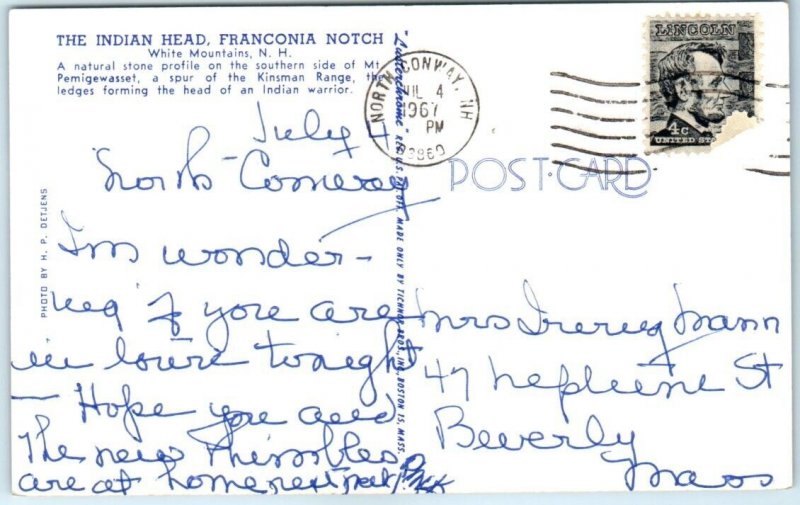 THE INDIAN HEAD, FRANCONIA NOTCH
White Mountains, N. H.
A natural stone profile on the southern side of Mt.
Pemigewasset, a spur of the Kinsman Range, the
ledges forming the head of an Indian warrior.
July 4
North Conway
I'm wonder-
ing if you are
in tonight
— Hope you and
The new Thimbles
are at home next
PHOTO BY H. P. DETJENS
"Lusterchrome" REG. U.S. PAT. OFF. MADE ONLY BY TICHNOR BROS., INC., BOSTON 15, MASS.
NORTH CONWAY, NH
JUL 4
1967
PM
03860
LINCOLN
4c
UNITED STA
POST CARD
Mrs Mann
47 Neptune St
Beverly
Mass